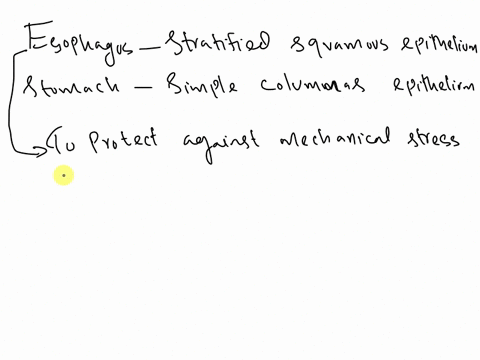 Esophagus - Stratified squamous epithelium
Stomach - Simple columnas epithelium
To Protect against mechanical stress